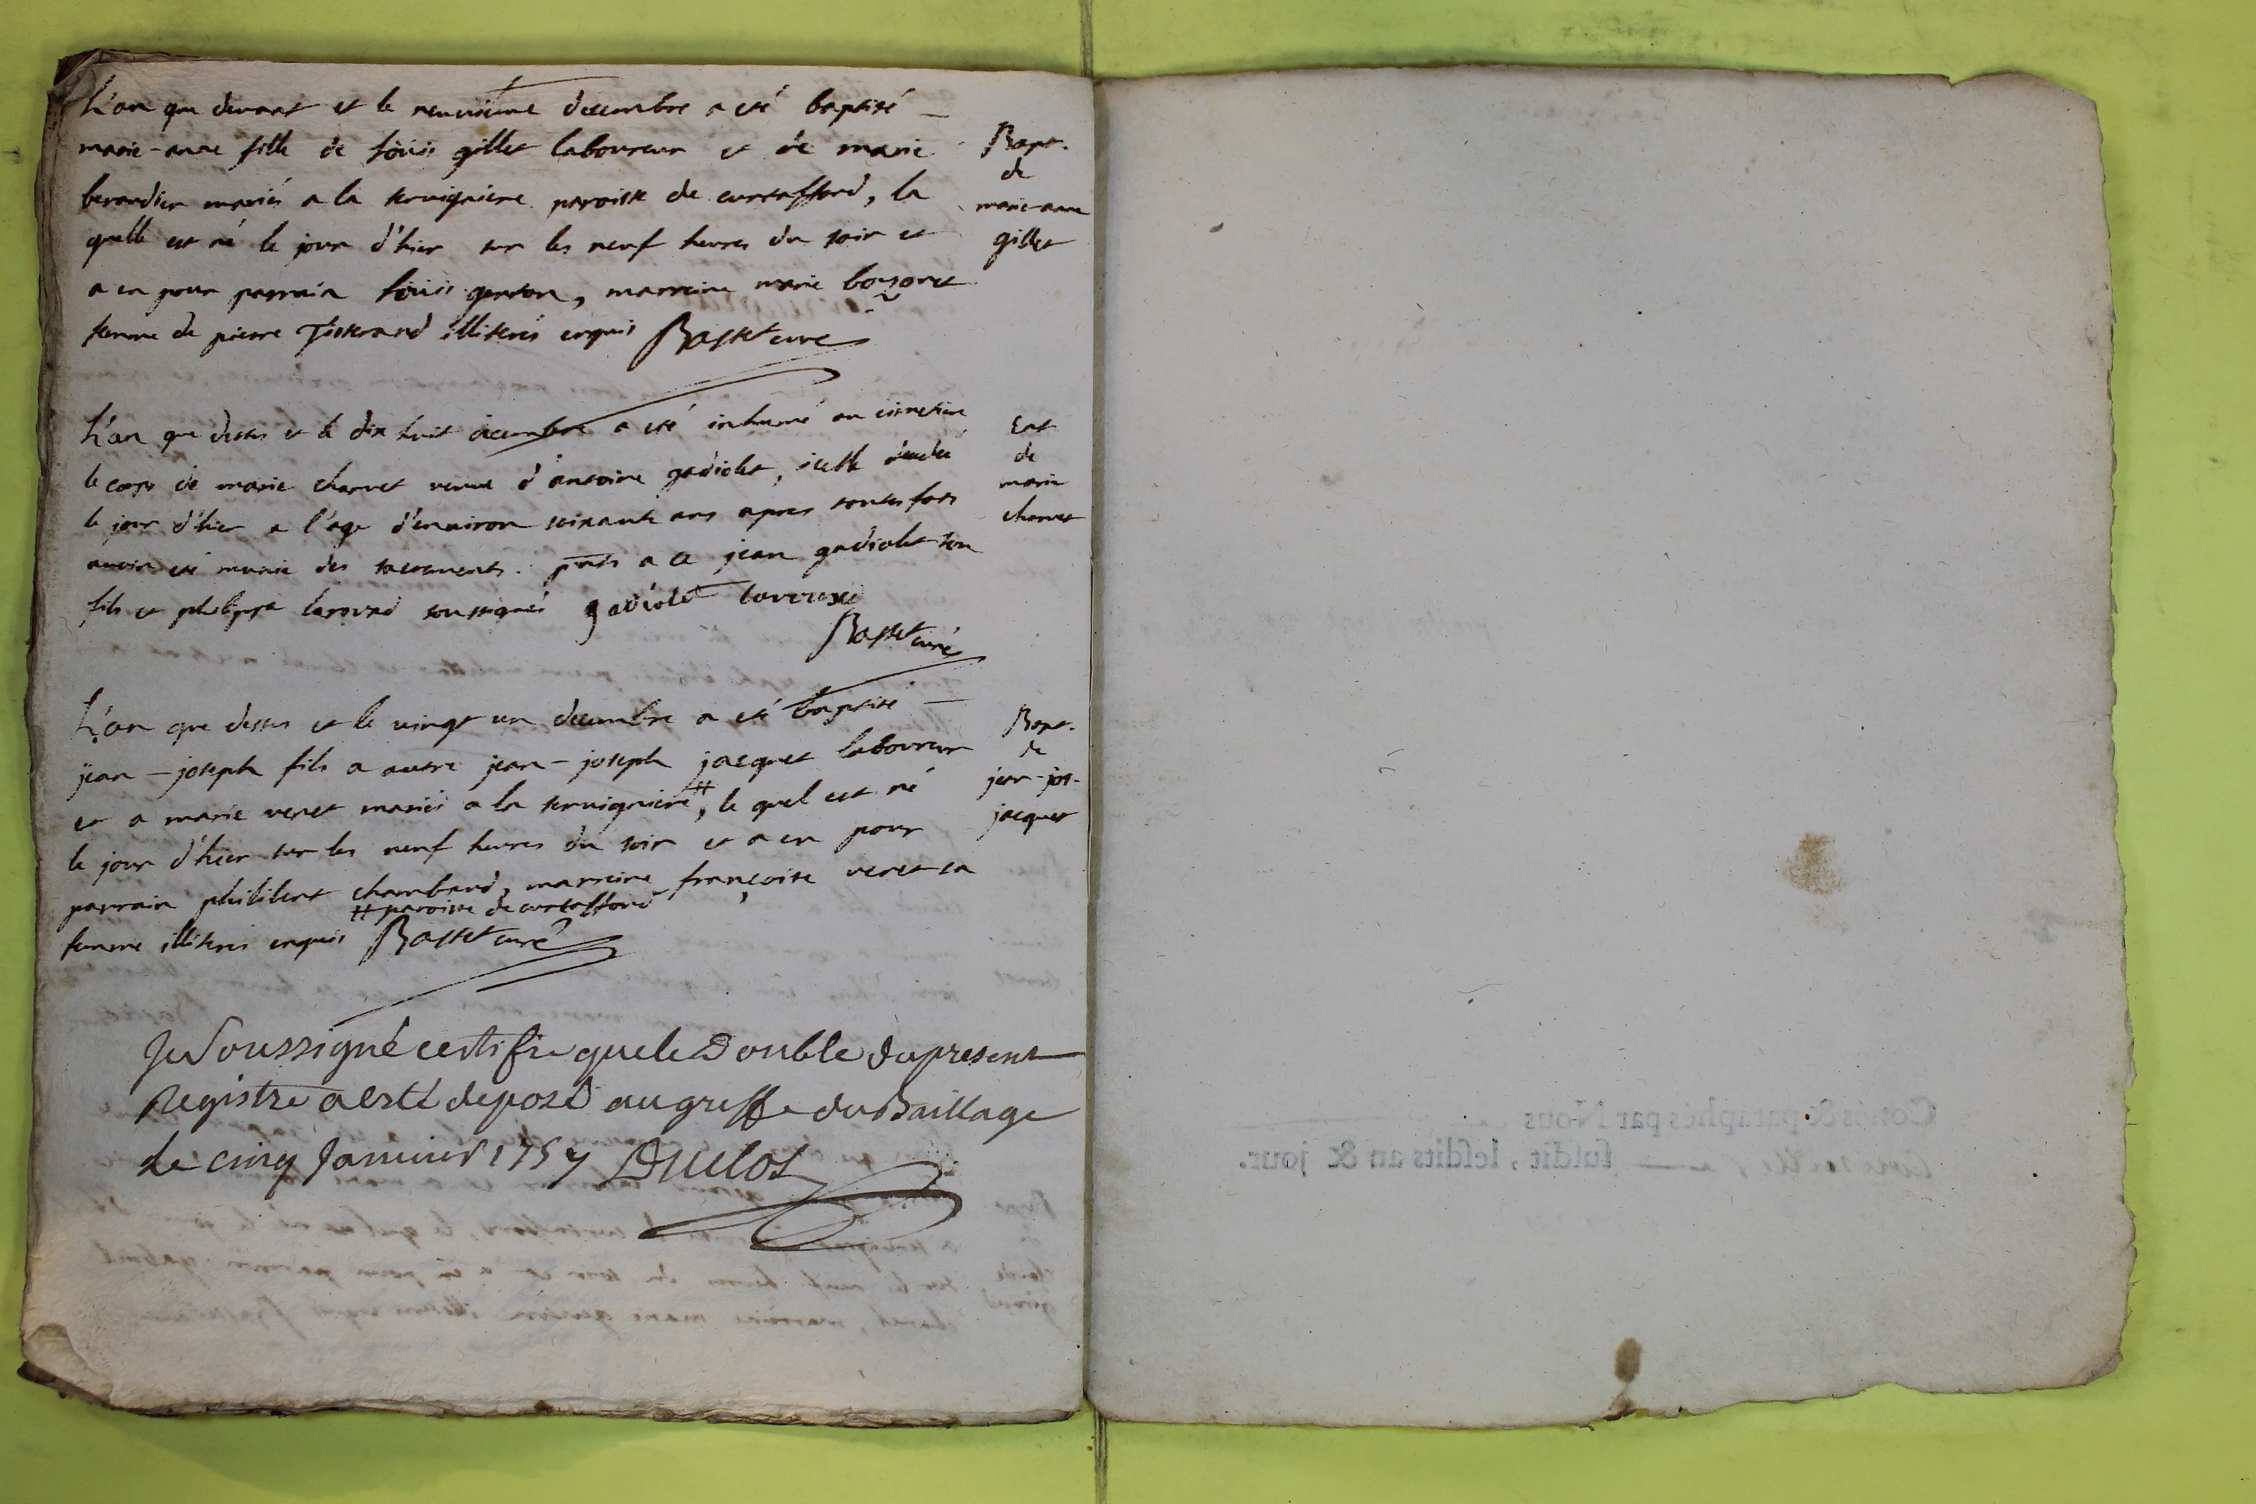 L'an que devant et le neuvieme decembre a eté baptisé
marie-anne fille de loüis gillet laboureur et de marie
berardier mariés a la servigniere paroisse de curtaffond, la
quelle est né le jour d'hier sur les neuf heures du soir et
a eu pour parrain loüis genton, marreine marie
femme de pierre Tisserand illiterés enquis Basset curé
Bapt.
de
marie-anne
gillet
L'an que dessus et le dix huit decembre a eté inhumé au cimetiere
le corps de marie charvet veuve d'antoine gadiolet, icelle decedée
le jour d'hier a l'age d'environ soixante ans apres toutesfois
avoir eté munie des sacrements. pnts a ce jean gadiolet son
fils et philippe soussignés gadiolet
Basset curé
Ent
de
marie
charvet
L'an que dessus et le vingt un decembre a eté baptisé
jean-joseph fils a autre jean-joseph jacquet laboureur
et a marie venet mariés a la servigniere #, le quel est né
le jour d'hier sur les neuf heures du soir et a eu pour
parrain philibert chambard, marreine françoise venet sa
# paroisse de curtaffond
femme illiterés enquis Basset curé
Bapt.
de
jean-jos-
jacquet
Je Soussigné certifie que le Double du present
Registre a esté deposé au greffe du Baillage
le cinq Janvier 1757 Duclos
Cotés & paraphés par Nous
susdit, lesdits an & jour.